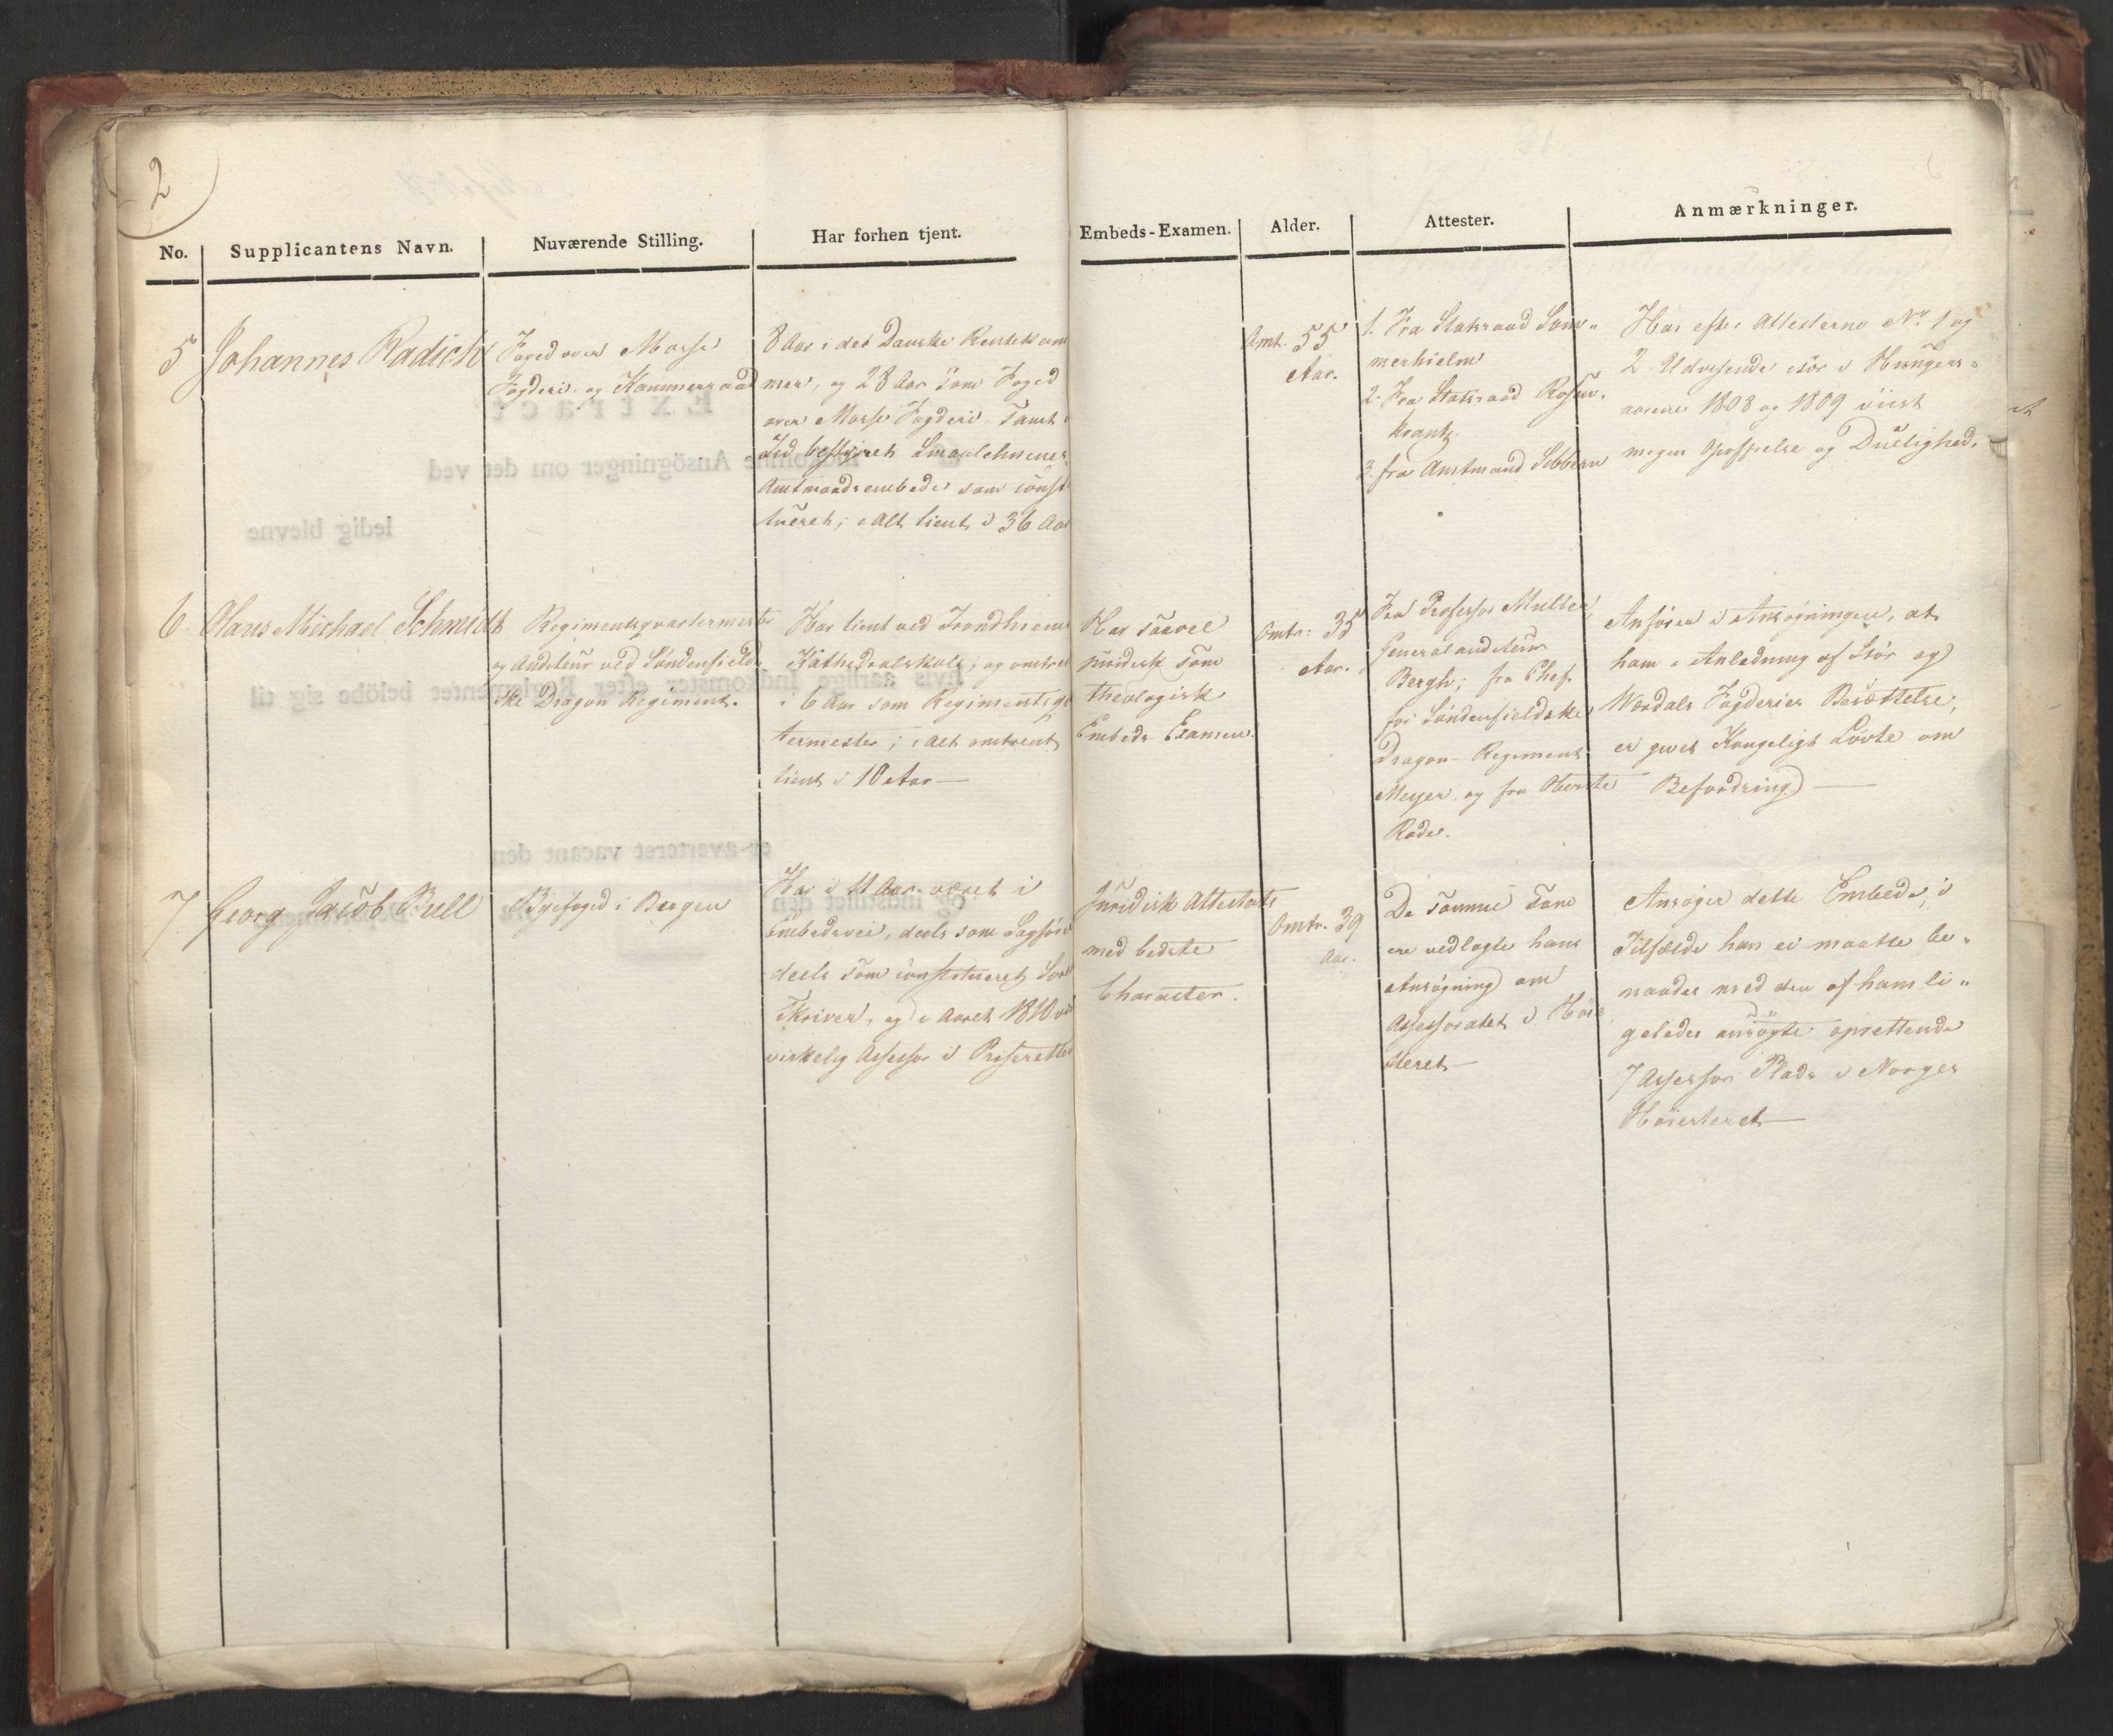 2
No.
Supplicantens Navn.
Nuværende Stilling.
Har forhen tjent.
Embeds-Examen.
Alder.
Attester.
Anmærkninger.
5
Johannes Radich
Foged over Mosse
Fogderi og Kammerraad
8 Aar i det Danske Rentekam
mer, og 28 Aar som Foged
over Mosse Fogderi samt
Tid bestyret Smaalehnenes
Amtmandsembede som const
tueret; i Alt tient i 36 Aar
Omt. 55
Aar.
1. Fra Statsraad Som-
merhielm
2. Fra Statsraad Rosen-
krantz.
3. fra Amtmand Sibbern
Har efter Attesterne No. 1 og
2 Udvisende især i Hungers-
aarene 1808 og 1809 viist
megen Opoffrelse og Duelighed.
6.
Hans Michael Schmidt
Regimentsqvartermester
og Auditeur ved Søndenfield-
ske Dragon Regiment.
Har tient ved Trondhiems
Kathedralskole, og omtrent
i 6 Aar som Regimentsqv
termester; i Alt omtrent
tient i 10 Aar —
Har saavel
juridisk som
theologisk
Embeds Examen.
Omtr: 35
Aar.
Fra Professor Muller,
Generalauditeur
Bergh; fra Chef.
for Søndenfieldske
Dragon-Regiment
Meyer, og fra Oberste
Rode.
Anfører i Ansøgningen, at
ham i Anledning af Stör og
Værdals Fogderies Besættelse,
er givet Kongeligt Løvte om
Befordring —
7.
Georg Jacob Bull
Byefoged i Bergen
Har i 11 Aar været i
Embedsvei, deels som Sagföre
deels som constitueret Sore
skriver, og i Aaret 1810 
virkelig Assessor i Priseretten
Juridisk Attestats
med bedste
Character.
Omtr. 39
Aar.
De samme som
ere vedlagte hans
Ansøgning om
Assessoratet i Höie
steret —
Ansøger dette Embede, i
Tilfælde han ei maatte be-
naades med den af ham li-
geledes ansøgte oprettende
7 Assessor Plads i Norges
Höiesteret —